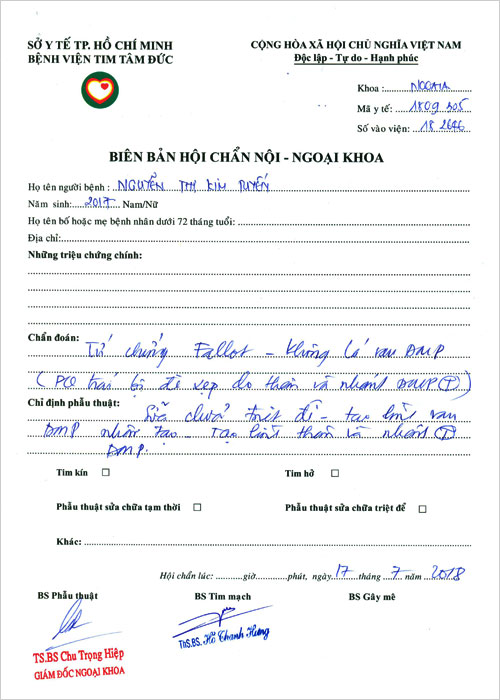 SỞ Y TẾ TP. HỒ CHÍ MINH
BỆNH VIỆN TIM TÂM ĐỨC
CỘNG HÒA XÃ HỘI CHỦ NGHĨA VIỆT NAM
Độc lập - Tự do - Hạnh phúc
Khoa :
Mã y tế: 1809 305
Số vào viện: 18 2646
BIÊN BẢN HỘI CHẨN NỘI - NGOẠI KHOA
Họ tên người bệnh : NGUYỄN THỊ KIM TUYẾN
Năm sinh: 2017 Nam/Nữ
Họ tên bố hoặc mẹ bệnh nhân dưới 72 tháng tuổi:
Địa chỉ:
Những triệu chứng chính:
Chẩn đoán: Tứ chứng Fallot - không lá van ĐMP
( trái bị đè xẹp do thân và nhánh ĐMP (T) )
Chỉ định phẫu thuật: Sửa chữa triệt để - tạo hình van
ĐMP nhân tạo - Tạo hình thân và nhánh (T)
ĐMP.
Tim kín
Tim hở
Phẫu thuật sửa chữa tạm thời
Phẫu thuật sửa chữa triệt để
Khác:
Hội chẩn lúc: giờ phút, ngày 17 tháng 7 năm 2018
BS Phẫu thuật
BS Tim mạch
BS Gây mê
TS.BS Chu Trọng Hiệp
GIÁM ĐỐC NGOẠI KHOA
ThS.BS. Hồ Thanh Hưng